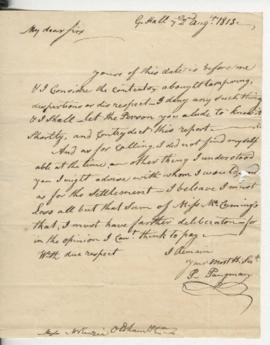 G. Hall 2d Augt. 1813.
My dear Sir
Yours of this date is before me
& I Consider the contents, about tampering,
desertions or disrespect - I deny any such thing
& I Shall let the Person you alude to know it
Shortly, and Contradict this report -
And as for Calling, I did not find myself
able at the time, another thing I understood
you I might advise with whom I would,
as for the Settlement - I beleave I must
Loss all but that Sum of Miss Mc
that, I must have farther deliberation for
in the opinion I cant. think to pay -
With due respect I Remain
Your Most H. Svt.
P. Pangman